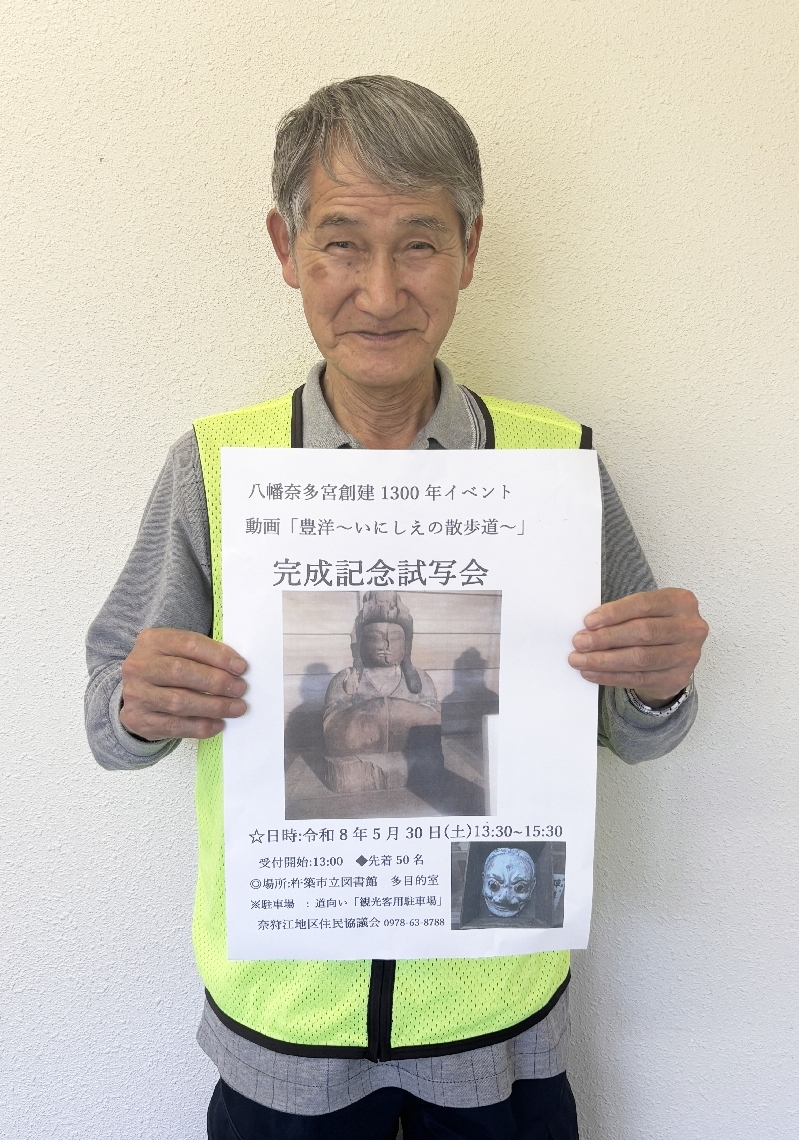 八幡奈多宮創建 1300 年イベント
動画「豊洋～いにしえの散歩道～」
完成記念試写会
☆日時:令和 8 年 5 月 30 日(土)13:30~15:30
受付開始:13:00 ◆先着 50 名
◎場所:杵築市立図書館 多目的室
※駐車場 : 道向い「観光客用駐車場」
奈狩江地区住民協議会 0978-63-8788